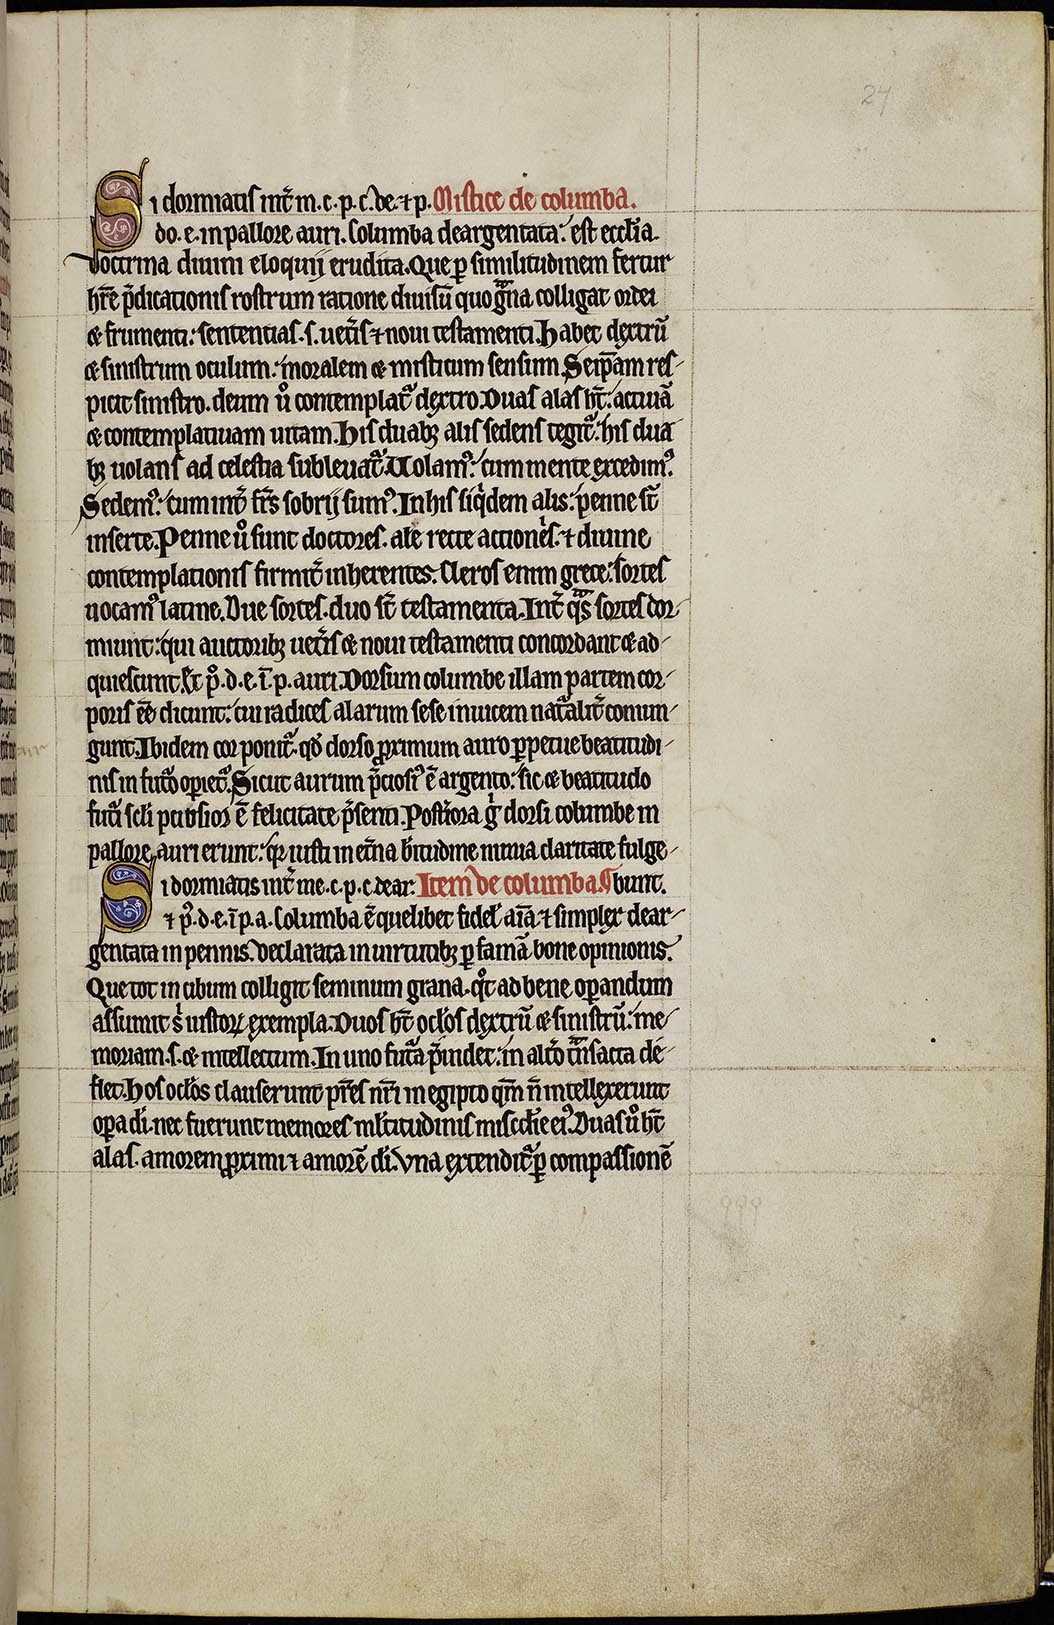 27
Si dormiatis int̄ m. c. p. c. de. ⁊ p. Mistice de columba.
do. e. in pallore auri. Columba deargentata: est eccl̄ia
doctrina diuini eloquij erudita. Que ꝑ similitudinem fertur
hr̄e p̄dicationis rostrum ratione diuisū quo gͣna colligat ordei
⁊ frumenti: sententias .s. uet̄is ⁊ noui testamenti. Habet dextrū
⁊ sinistrum oculum: moralem ⁊ misticum sensum. Seip̄am res-
picit sinistro. deum u͛o contemplat᷑ dextro. Duas alas hт̄: actiuā
⁊ contemplatiuam uitam. His duabꝫ alis sedens tegit᷑. his dua
bꝫ uolans ad celestia subleuat᷑. Uolamꝰ: cum mente excedimꝰ.
Sedemꝰ: cum int̄ fr̄s sobrij sumꝰ. In his siqͥdem alis: penne st̄
inserte. Penne u͛o sunt doctores. ale recte actionis. ⁊ diuine
contemplationis firmit̄ inherentes. Cleros enim grece: sortes
uocamꝰ latine. Due sortes. duo st̄ testamenta. Int̄ qͣs sortes dor-
miunt: qui auctoribꝫ uet̄is ⁊ noui testamenti concordant ⁊ ad-
quiescunt. Et pꝰ. d. e. ī. p. auri. Dorsum columbe illam partem cor-
poris ēē dicunt: cui radices alarum sese inuicem natͣalit̄ coniun-
gunt. Ibidem cor ponit᷑. qd̄ dorso ꝓximum auro ꝑpetue beatitudi-
nis in futͦo opiet᷑. Sicut aurum p̄ciosiꝰ ē argento: sic ⁊ beatitudo
futͥ scl̄i p̄ciosior ē felicitate p̄senti. Post̄iora gͦ dorsi columbe in
pallore auri erunt: qꝛ iusti in et̄na b̄titudine nimia claritate fulge-
Si dormiatis int̄ me. c. p. c. dear. Item de columba. ¶ bunt.
⁊ pꝰ. d. e. ī. p. a. Columba ē quelibet fidel᷒ aīa ⁊ simplex dear-
gentata in pennis. declarata in uirtutibꝫ ꝑ famā bone opinionis.
Que tot in cibum colligit seminum grana. qͦt ad bene oꝑandum
assumit sͥ iustoꝝ exempla. Duos hт̄ ocl̄os dextrū ⁊ sinistrū: me-
moriam .s. ⁊ intellectum. In uno futͣa p̄uidet. in alt̄o tͣnsacta de-
flet. Hos ocl̄os clauserunt pr̄es nr̄i in egipto qm̄ n̄ intellexerunt
oꝑa di. nec fuerunt memores ml̄titudinis misc̄die eiꝰ. Duas u͛o hт̄
alas. amorem ꝓximi ⁊ amorē di. Vna extendit᷑ ꝑ compassionē